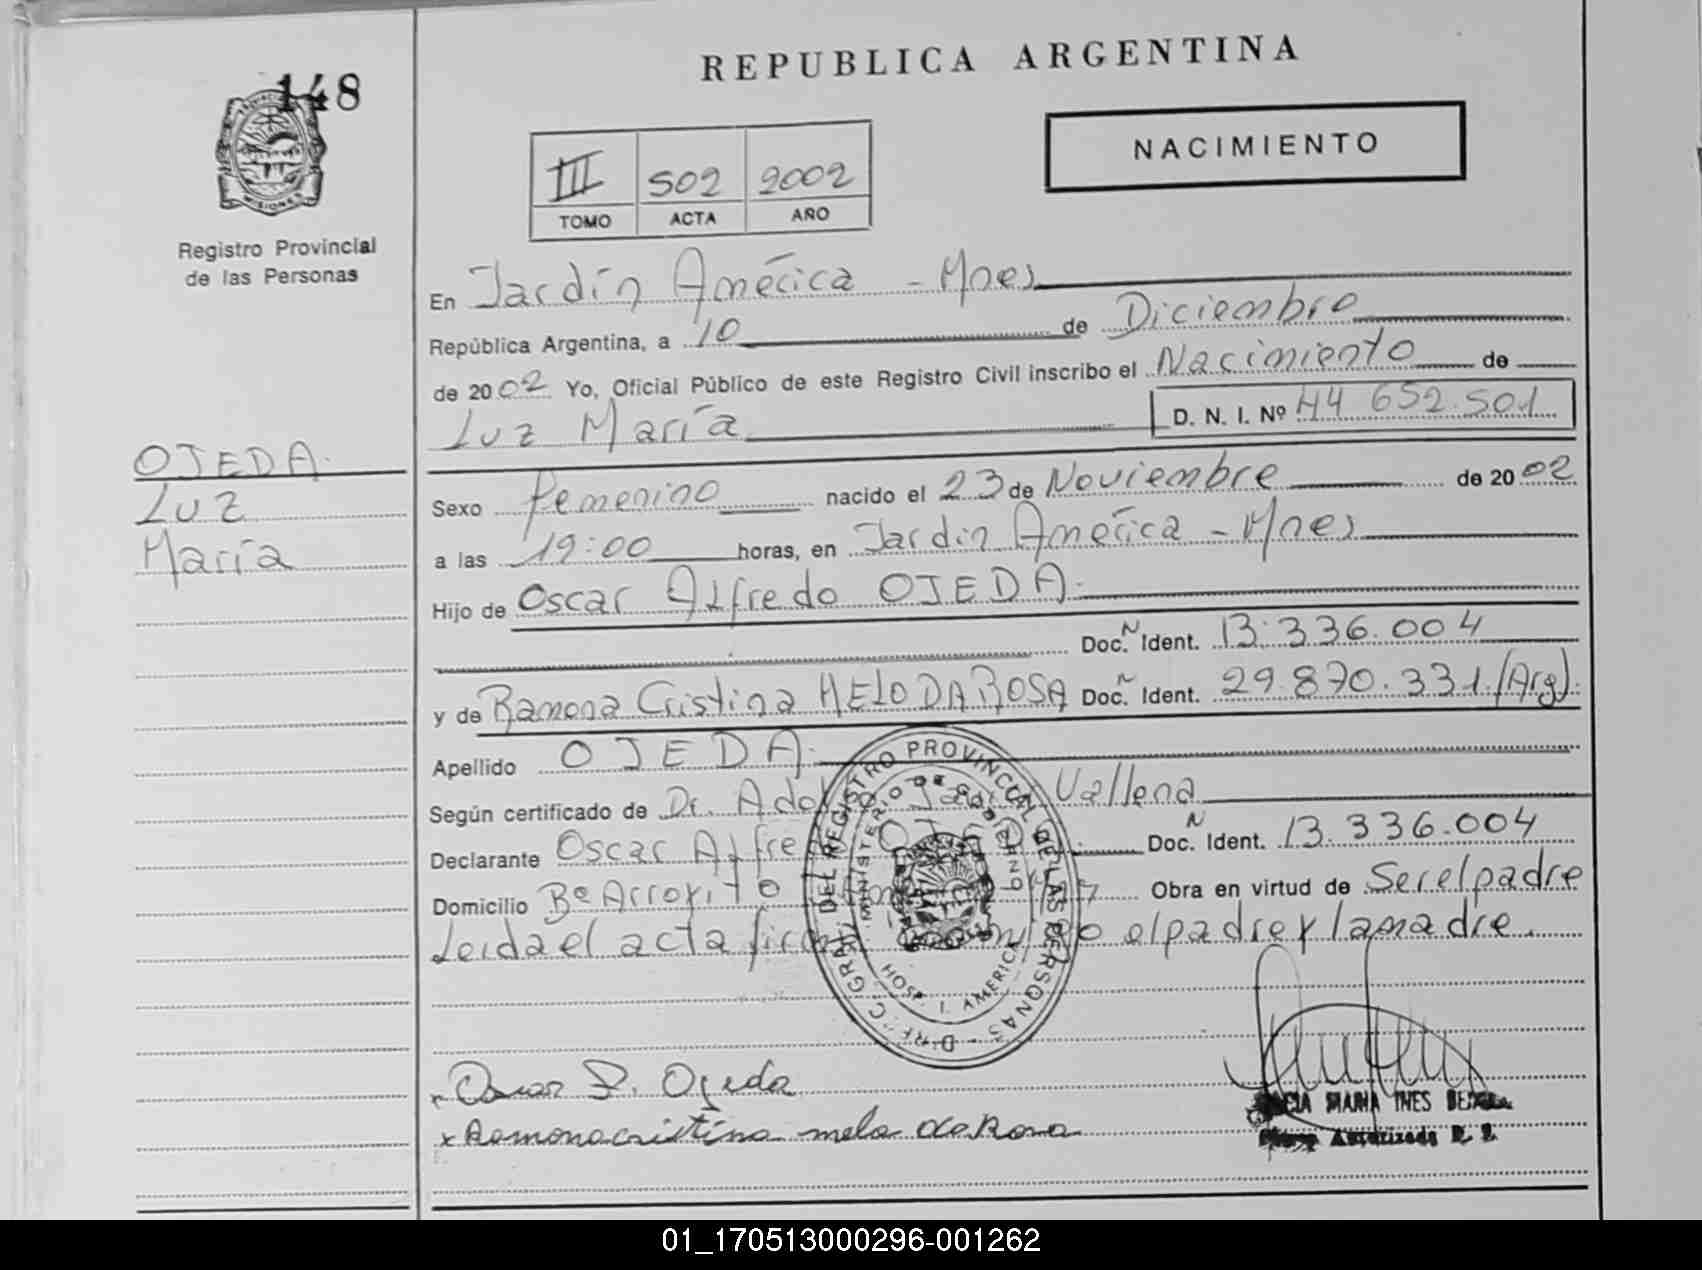 148
REPUBLICA ARGENTINA
NACIMIENTO
III 502 2002
TOMO ACTA AÑO
MISIONES
Registro Provincial
de las Personas
OJEDA
Luz
María
En Jardín América - Mnes
República Argentina, a 10 de Diciembre
de 2002 Yo, Oficial Público de este Registro Civil inscribo el Nacimiento de
Luz María D. N. I. Nº 44 652.501
Sexo Femenino nacido el 23 de Noviembre de 2002
a las 19:00 horas, en Jardín América - Mnes
Hijo de Oscar Alfredo OJEDA
Doc. N Ident. 13.336.004
y de Ramona Cristina MELO DA ROSA Doc. N Ident. 29.870.331 (Arg).
Apellido OJEDA
Según certificado de Dr. Vallena
Declarante Oscar Doc. N Ident. 13.336.004
Domicilio Bº Arroyito Obra en virtud de Ser el padre
Leida el acta el padre y la madre.
DEL REGISTRO PROVINCIAL DE LAS PERSONAS
MINISTERIO DE GOBIERNO
HOSP. J. AMERICA
x Oscar A. Ojeda
x Ramona cristina melo da Rosa
MARIA INES
Autorizada
01_170513000296-001262